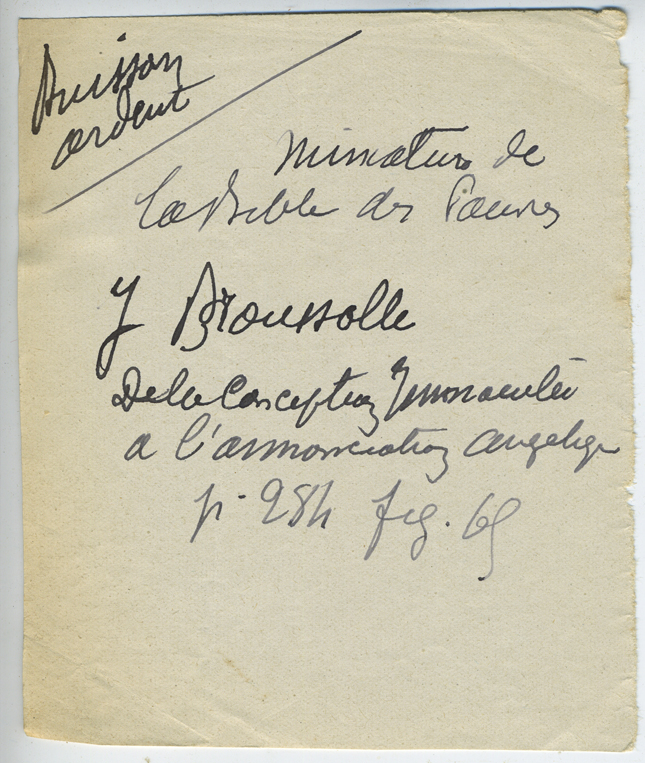 Buisson
ardent
Miniature de
la Bible des Pauvres
J Broussolle
De la Conception Immaculée
a l'annonciation angelique
p. 284 fig. 69